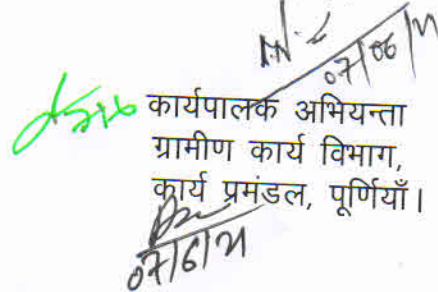 07/06/21
कार्यपालक अभियन्ता
ग्रामीण कार्य विभाग,
कार्य प्रमंडल, पूर्णियाँ।
07/6/21